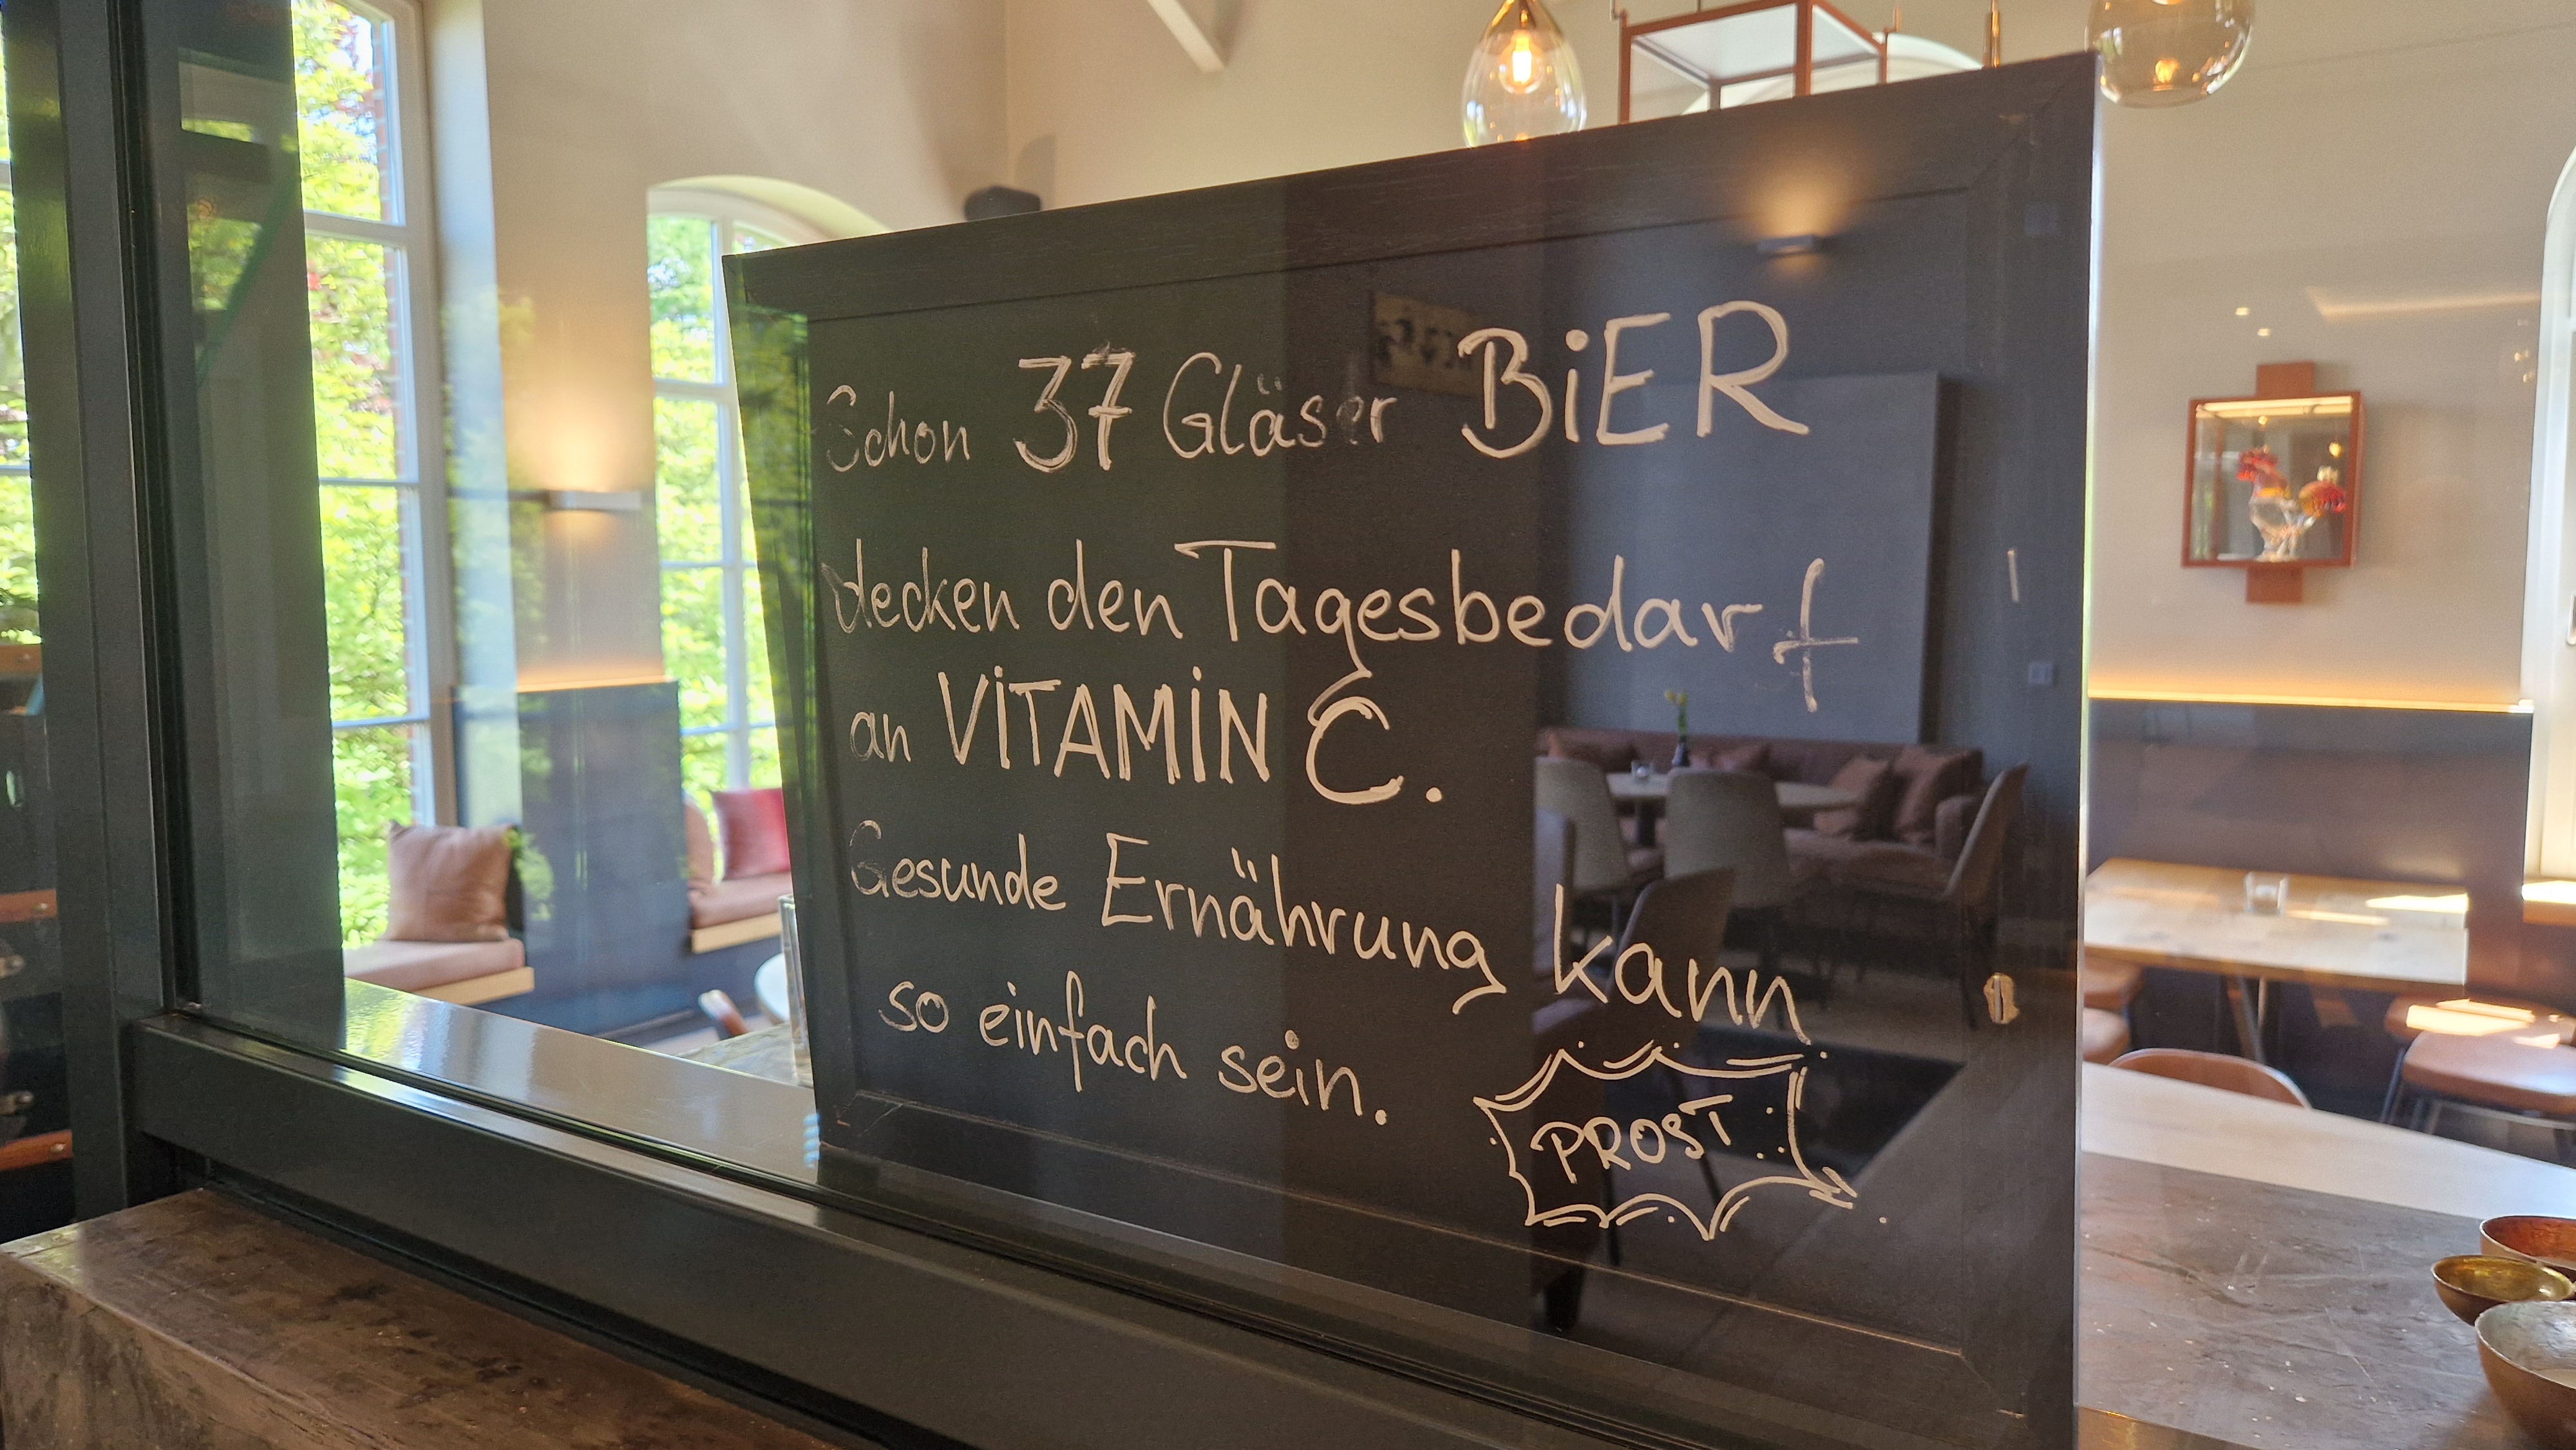 Schon 37 Gläser BiER
decken den Tagesbedarf
an ViTAMiN C.
Gesunde Ernährung kann
so einfach sein.
PROST